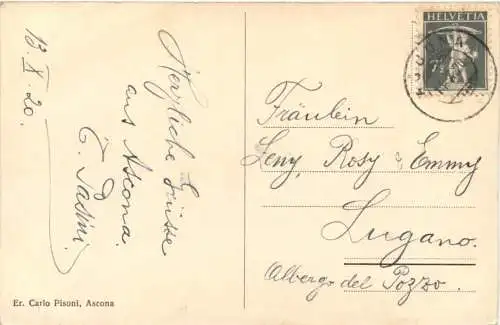 13 X. 20.
Herzliche Grüsse
aus Ascona.
E. Pasini.
HELVETIA
7½
ASCONA
Fräulein
Leny, Rosy & Emmy
Lugano.
Albergo del Pozzo.
Er. Carlo Pisoni, Ascona